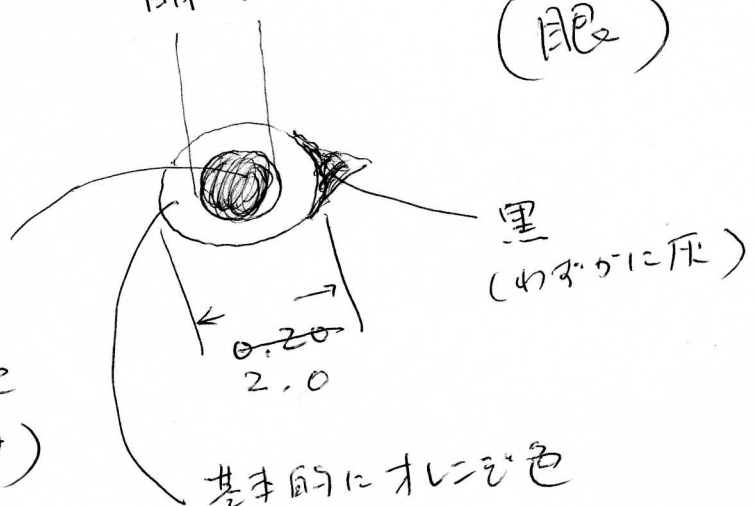 (眼)
黒
(わずかに灰)
0.20
2.0
基本的にオレンジ色